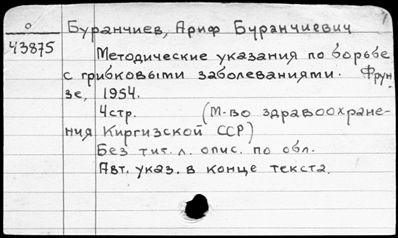 о
43875
Буранчиев, Ариф Буранчиевич
Методические указания по борьбе
с грибковыми заболеваниями. Фрун-
зе, 1954.
4стр. (М-во здравоохране-
ния Киргизской ССР)
Без тит. л. опис. по обл.
Авт. указ. в конце текста.